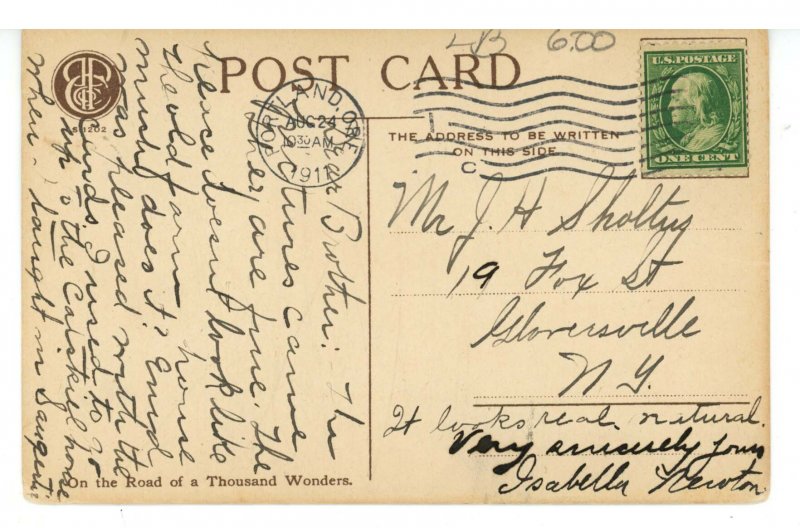 LB3 6.00
POST CARD
U.S. POSTAGE
ONE CENT
PORTLAND, ORE.
AUG 24
10 30 AM
1911
C
THE ADDRESS TO BE WRITTEN
ON THIS SIDE
Mr J. H Sholtus
19 Fox St
Gloversville
N.Y.
Dear Brother:- The
pictures came
they are fine. The
fence doesn't look like
the old farm house
much does it? Enid
was pleased with the
cards. I used to go
up to the Catskill house
when I taught in Saugerties
It looks real natural.
Very sincerely yours
Isabella Newton.
On the Road of a Thousand Wonders.